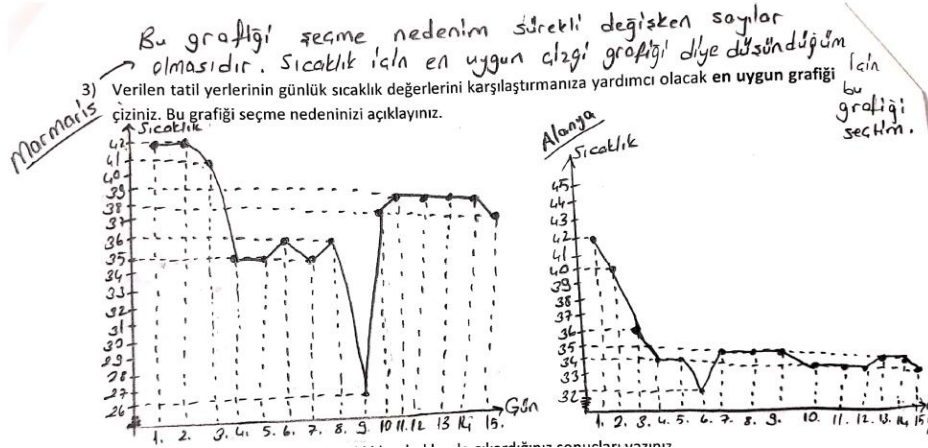 Bu grafiği seçme nedenim sürekli değişken sayılar
olmasıdır. Sıcaklık için en uygun çizgi grafiği diye düşündüğüm
için
bu
grafiği
seçtim.
3) Verilen tatil yerlerinin günlük sıcaklık değerlerini karşılaştırmanıza yardımcı olacak en uygun grafiği
çiziniz. Bu grafiği seçme nedeninizi açıklayınız.
Marmaris
Sıcaklık
42
41
40
39
38
37
36
35
34
33
32
31
30
29
28
27
26
1. 2. 3. 4. 5. 6. 7. 8. 9. 10 11. 12 13 14 15.
Gün
Alanya
Sıcaklık
45
44
43
42
41
40
39
38
37
36
35
34
33
32
1. 2. 3. 4. 5. 6. 7. 8. 9. 10. 11. 12. 13. 14. 15
sonuçları yazınız